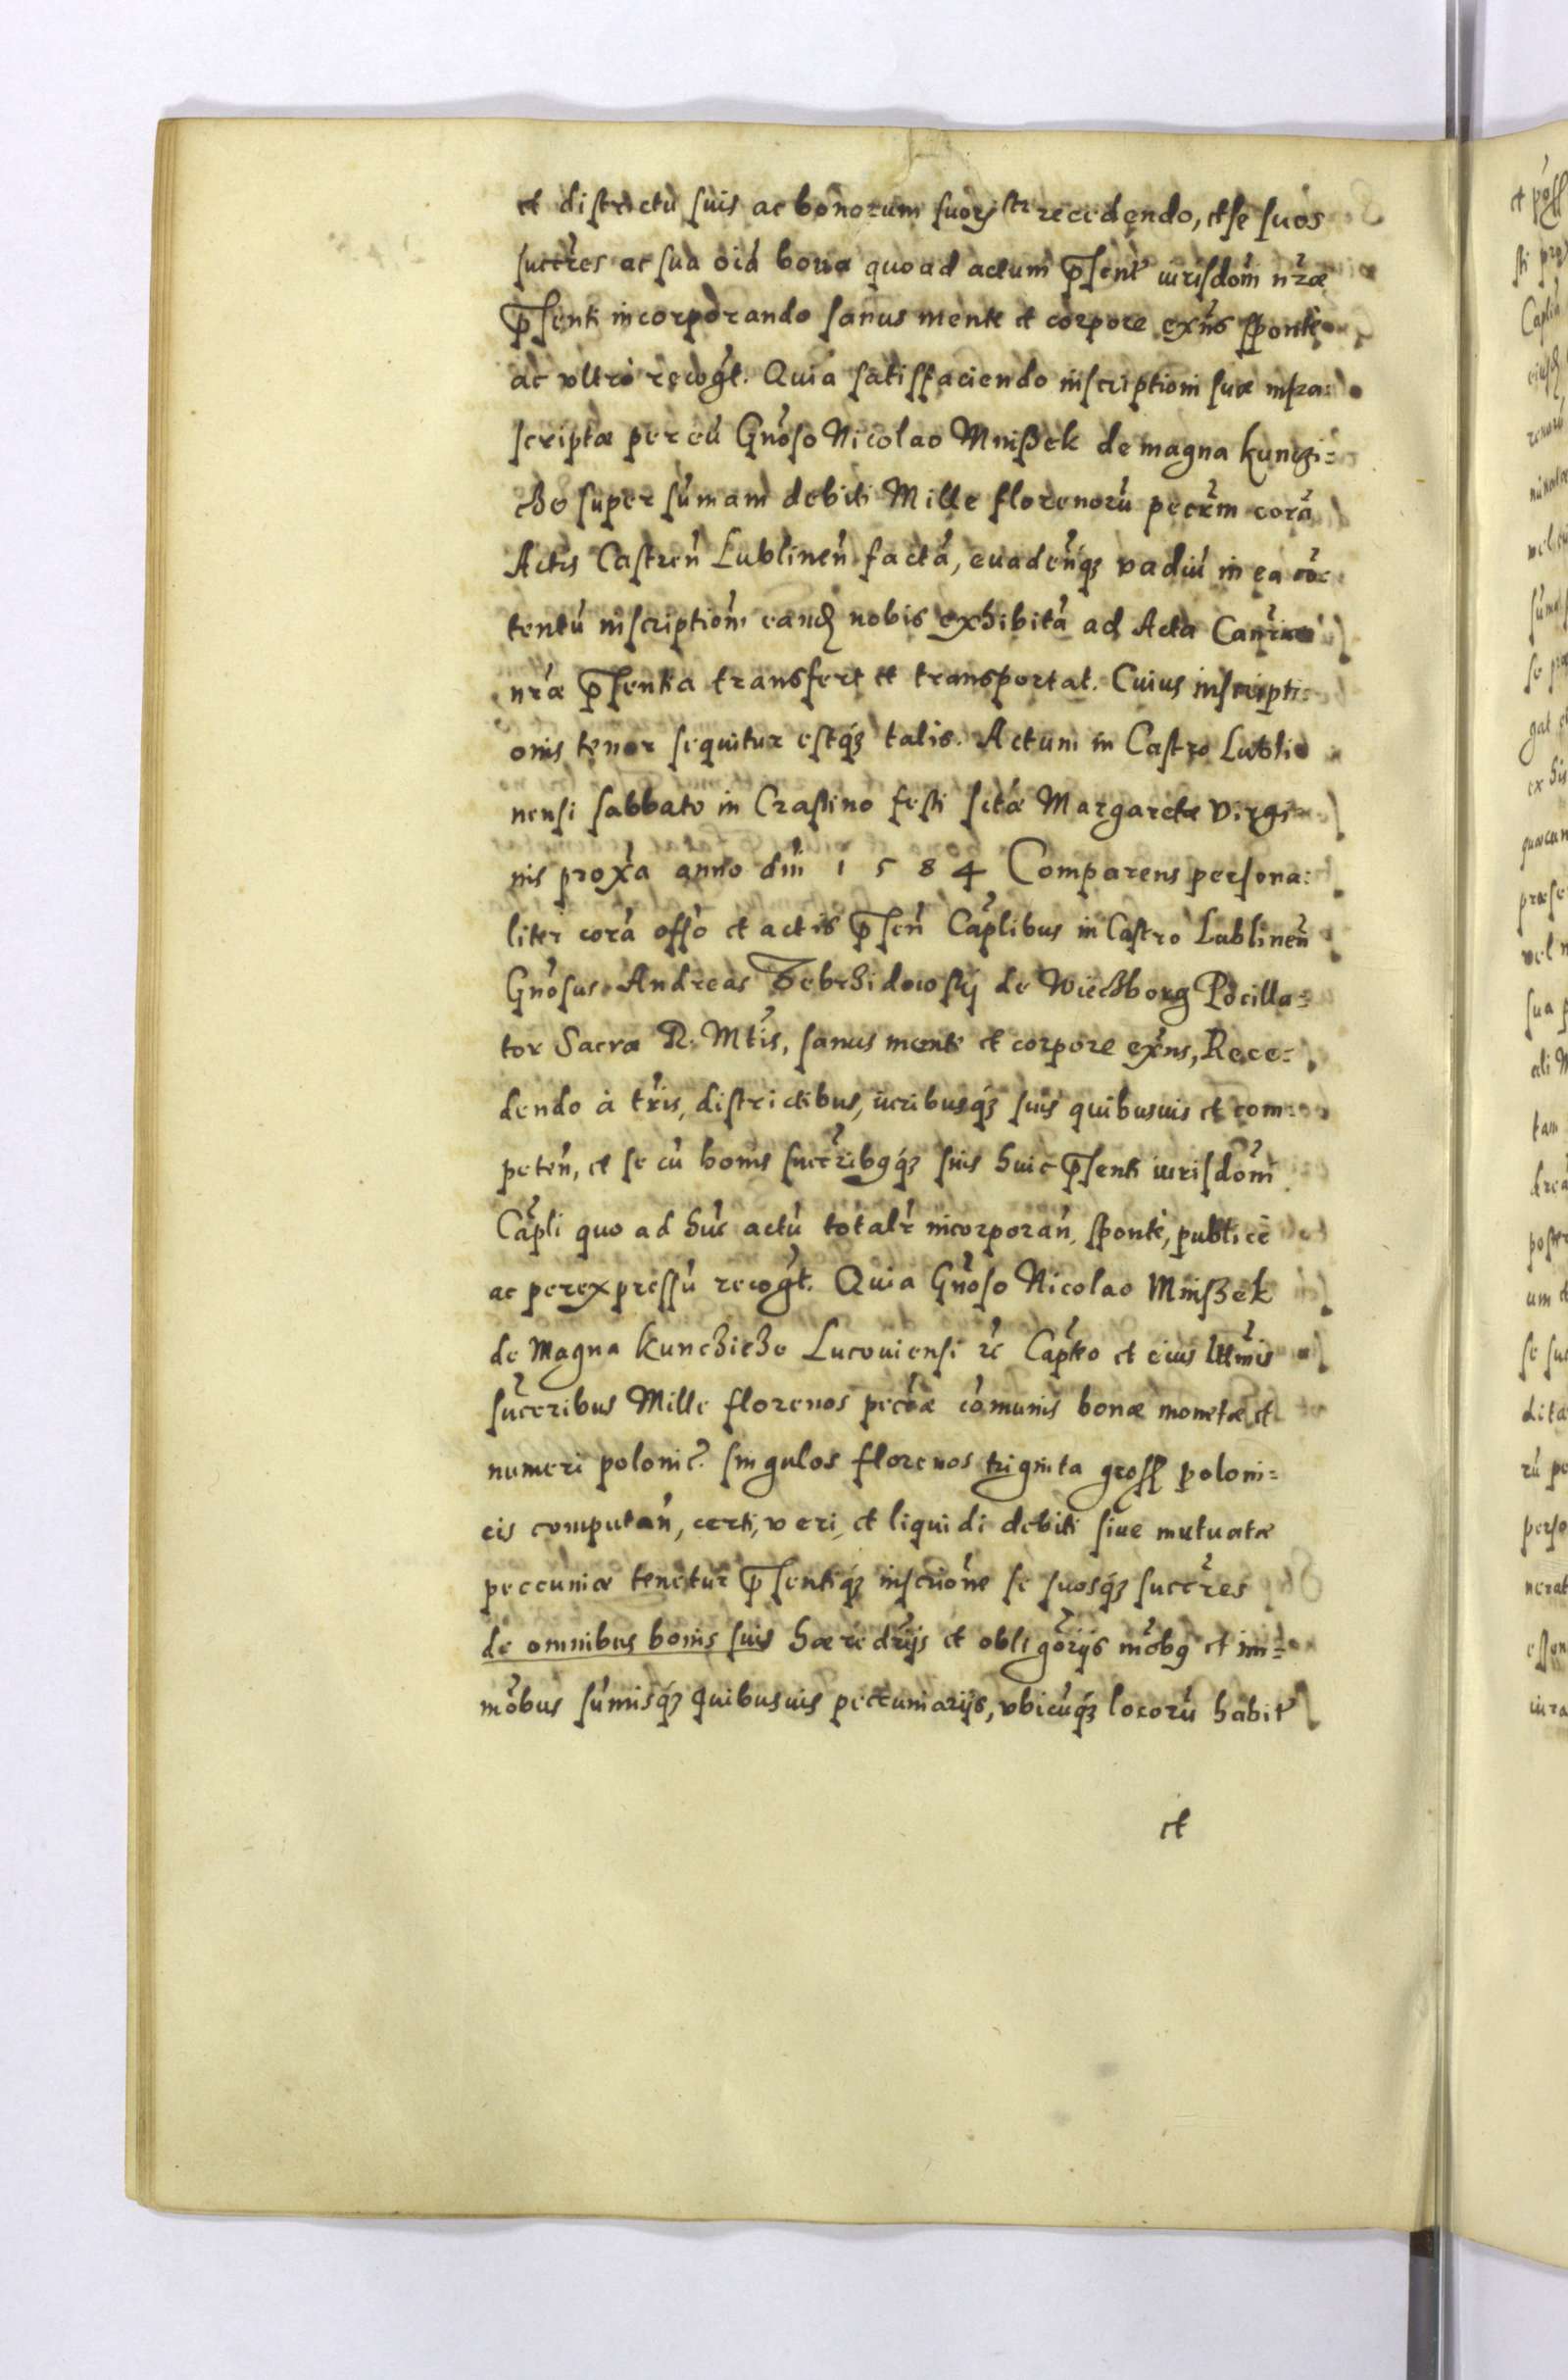 et districtu suis ac bonorum suorʒ recedendo, et se suos
succ̃res ac sua oĩa bona quoad actum p̃sent iurisdom̃ nr̃æ
p̃senti incorporando sanus mente et corpore exñs sponte
ac ultro recogt̃. Quia satisfaciendo inscriptioni suæ infra:
scriptæ per eũ Gnõso Nicolao Mnißek de magna kunczi=
cze super sũmam debiti Mille florenorũ pecũm corã
Actis Castreñ Lublineñ factã, euadeñqʒ vadiũ in ea cõ=
tentũ inscription̄ eandʒ nobis exhibitã ad Acta Canr̃iæ
nr̃æ p̃sentia transfert et transportat. Cuius inscripti=
onis tenor sequitur estqʒ talis. Actum in Castro Lubli=
nensi sabbato in Crastino festi sctæ Margaretæ Virgi=
nis proxã anno dni 1584 Comparens persona:
liter corã offõ et actis p̃señ Cap̃libus in Castro Lublineñ
Gnõsus Andreas Zebrzidowskij de Wieczborg Pocilla=
tor Sacræ R. Mt̃is, sanus mente et corpore exñs, Rece=
dendo à tr̃is, districtibus, iuribusqʒ suis quibusuis et com=
peteñ, et se cũ bonis succr̃ibgqʒ suis huic p̃senti iurisdom̃
Cap̃li quo ad hũc actũ totalr̃ incorporañ, sponte, publice
ac per expressũ recogt̃. Quia Gnõso Nicolao Mnißek
de Magna kunczicze Lucouiensi ꝛc Cap̃teo et eius ltt̃mis
succr̃ibus Mille florenos pecc̃æ cõmunis bonæ monetæ et
numeri polonic̃. singulos florenos triginta gross poloni=
cis computañ, certi, veri, et liquidi debiti siue mutuatæ
peccuniæ tenetur p̃sentiqʒ inscriõne se suosqʒ succr̃es
de omnibus bonis suis hæredr̃ijs et obligõrijs mõbg et im=
mõbus sũmisqʒ quibusuis peccuniarijs, vbicũqʒ locorũ habit
et